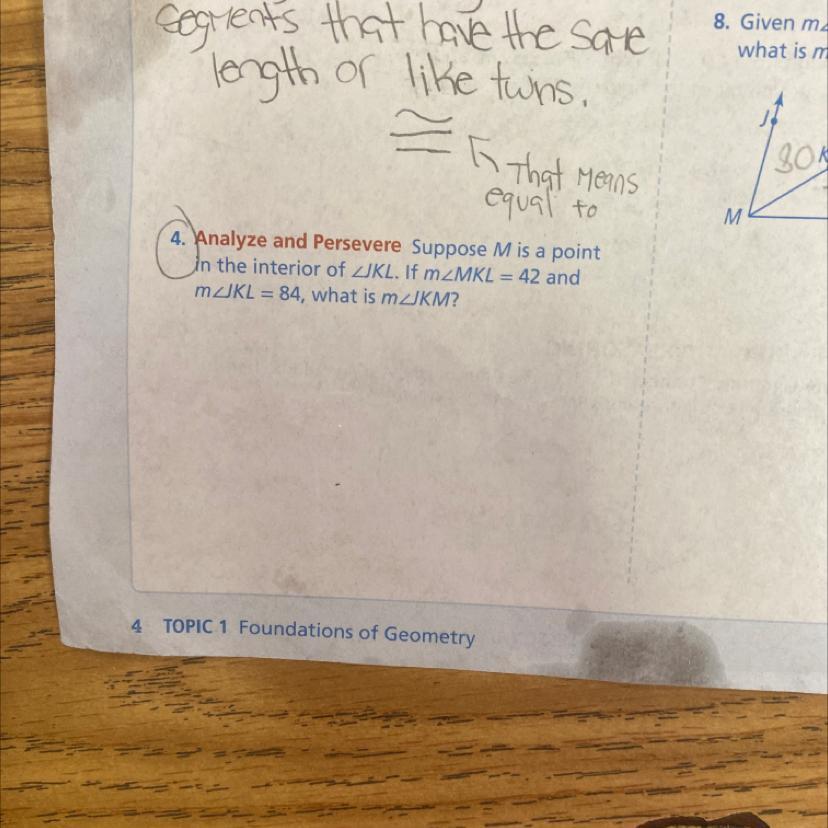 segments that have the same
length or like twins.
≅
That Means
equal to
4. Analyze and Persevere Suppose M is a point
in the interior of ∠JKL. If m∠MKL = 42 and
m∠JKL = 84, what is m∠JKM?
4 TOPIC 1 Foundations of Geometry
8. Given m∠
what is m
J
30
K
M